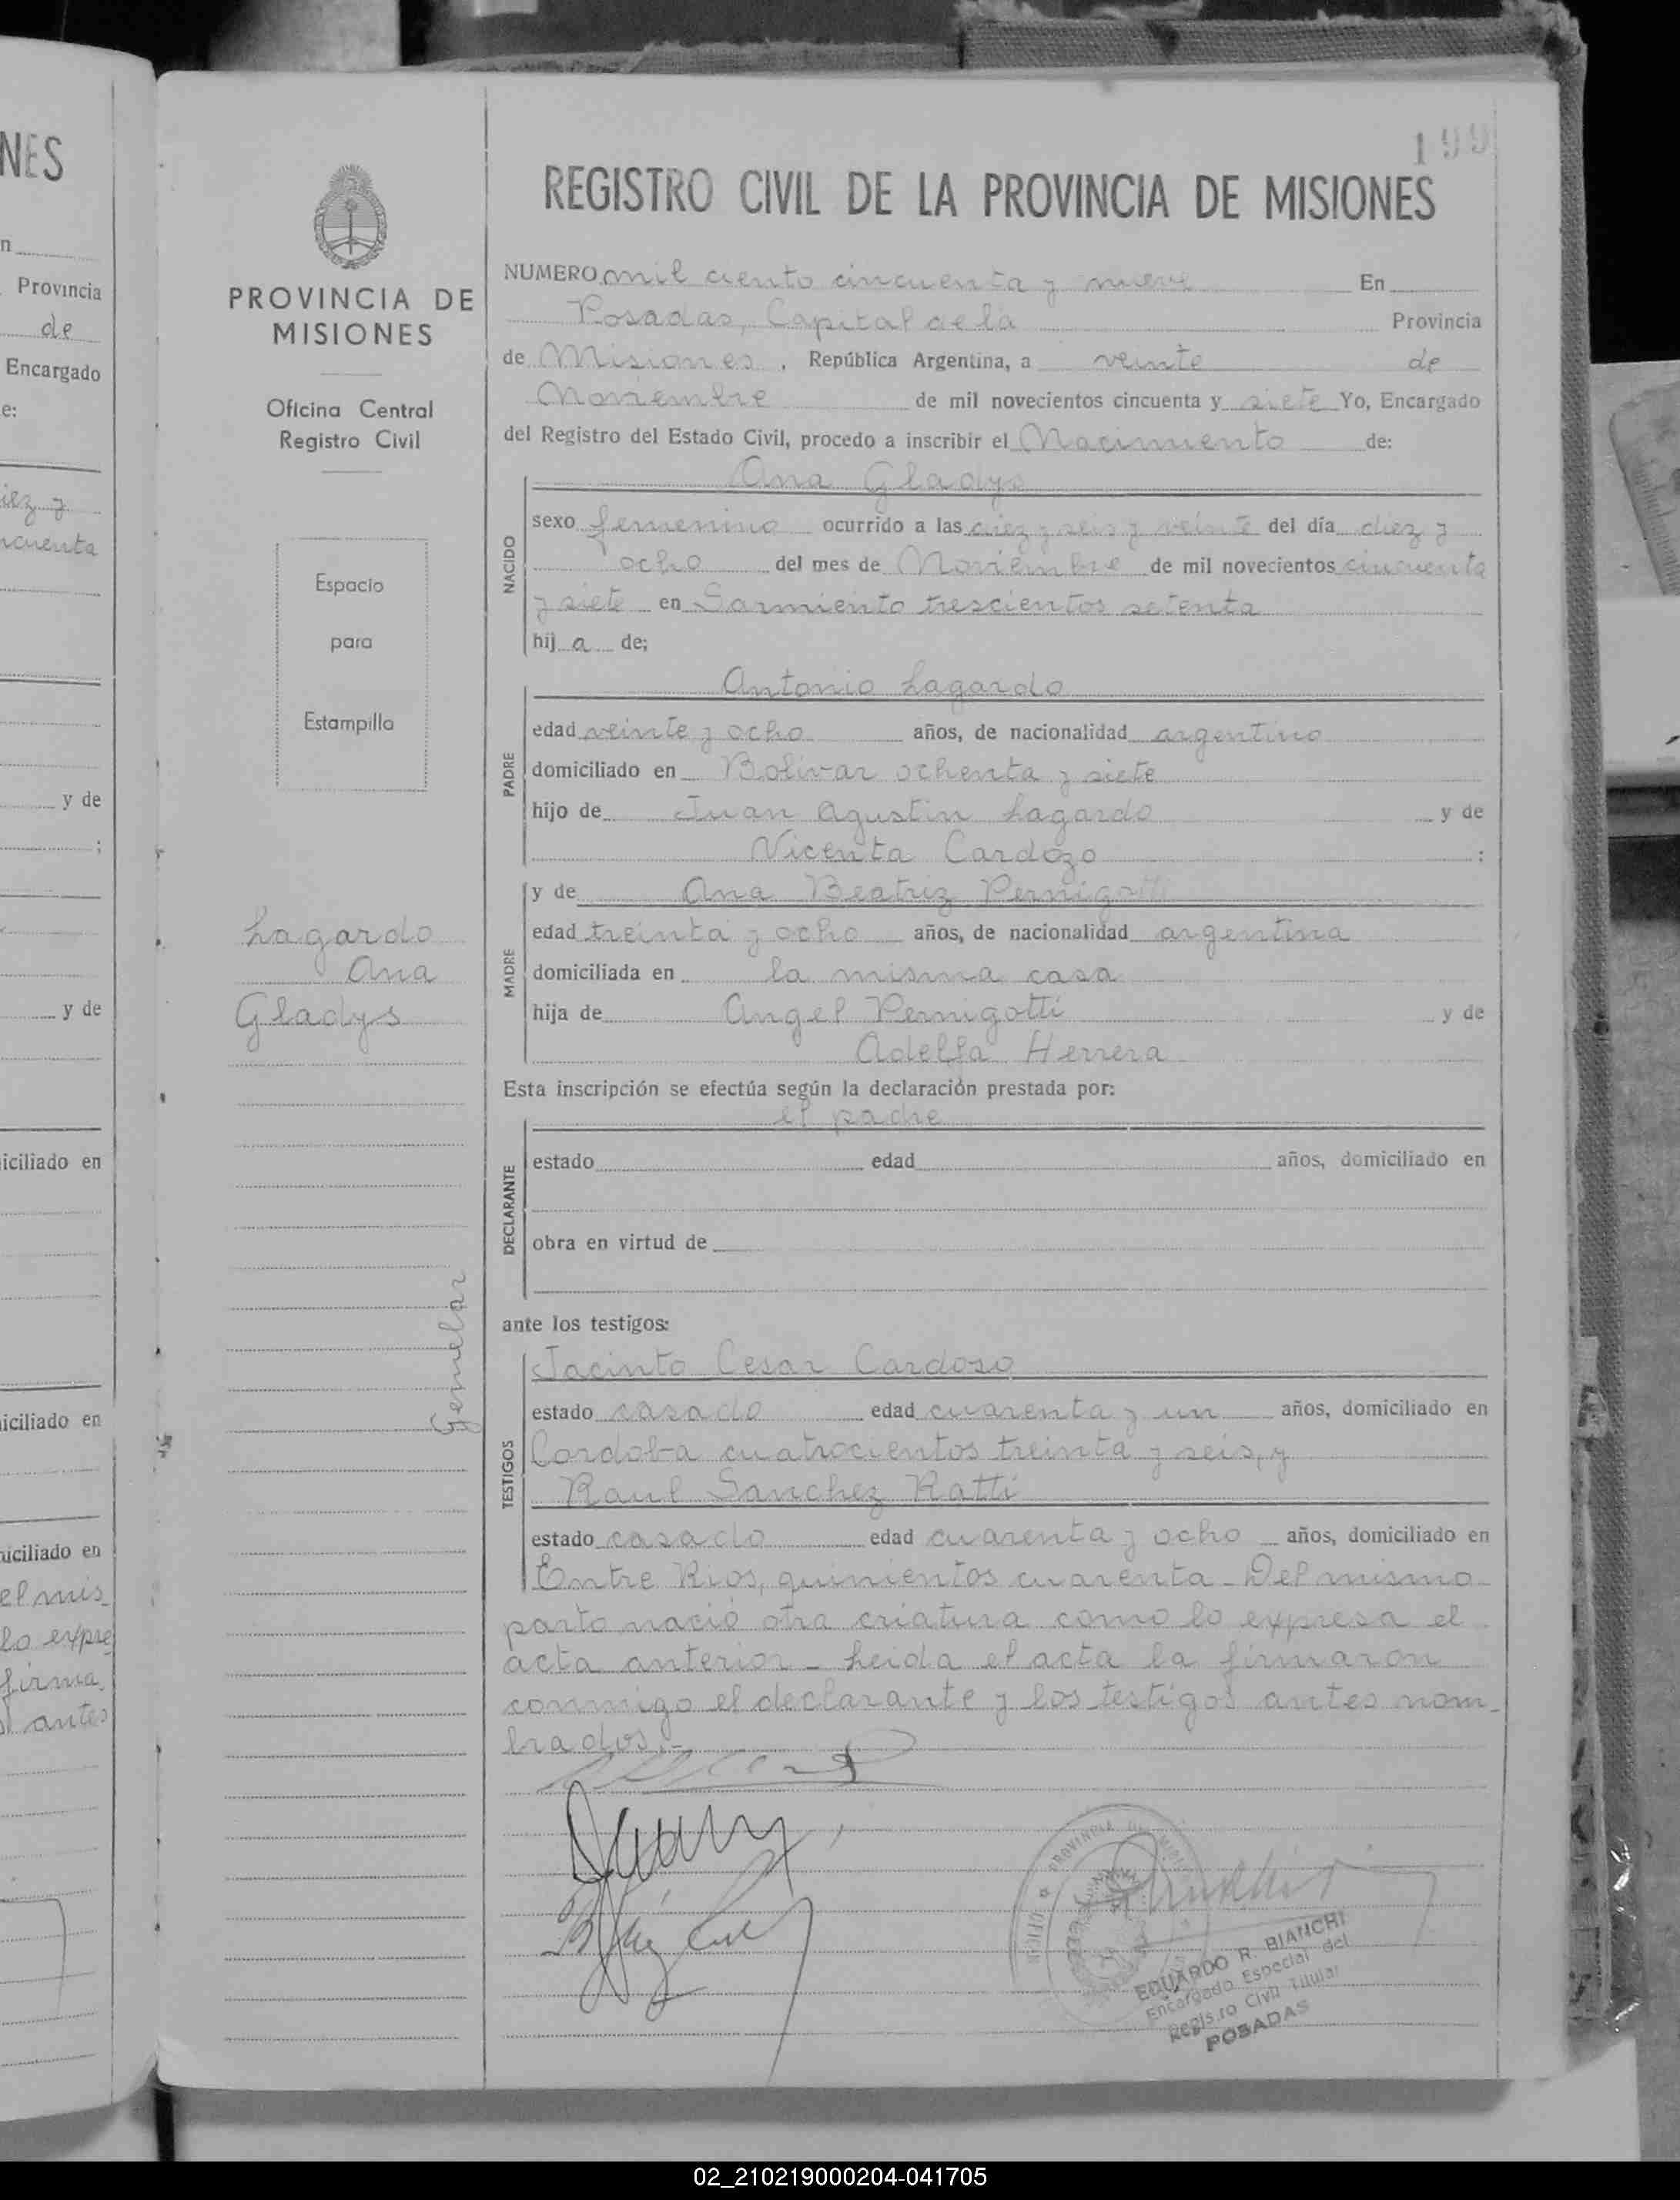 NES
n
Provincia
de
Encargado
e:
iez y
ncuenta
y de
;
y de
iciliado en
iciliado en
iciliado en
el mis
lo expre
firma
antes
PROVINCIA DE
MISIONES
Oficina Central
Registro Civil
Espacio
para
Estampilla
Lagardo
Ana
Gladys
Gemelar
199
REGISTRO CIVIL DE LA PROVINCIA DE MISIONES
NUMERO mil ciento cincuenta y nueve En
Posadas, Capital de la Provincia
de Misiones, República Argentina, a veinte de
Noviembre de mil novecientos cincuenta y siete Yo, Encargado
del Registro del Estado Civil, procedo a inscribir el Nacimiento de:
Ana Gladys
NACIDO
sexo femenino ocurrido a las diez y seis y veinte del día diez y
ocho del mes de Noviembre de mil novecientos cincuenta
y siete en Sarmiento trescientos setenta
hij a de;
Antonio Lagardo
PADRE
edad veinte y ocho años, de nacionalidad argentino
domiciliado en Bolivar ochenta y siete
hijo de Juan Agustin Lagardo y de
Vicenta Cardozo :
y de Ana Beatriz Pernigotti
MADRE
edad treinta y ocho años, de nacionalidad argentina
domiciliada en la misma casa
hija de Angel Pernigotti y de
Adelfa Herrera
Esta inscripción se efectúa según la declaración prestada por:
el padre
DECLARANTE
estado edad años, domiciliado en
obra en virtud de
ante los testigos:
Jacinto Cesar Cardoso
TESTIGOS
estado casado edad cuarenta y un años, domiciliado en
Cordoba cuatrocientos treinta y seis, y
Raul Sanchez Ratti
estado casado edad cuarenta y ocho años, domiciliado en
Entre Rios, quinientos cuarenta - Del mismo
parto nació otra criatura como lo expresa el
acta anterior - Leida el acta la firmaron
conmigo el declarante y los testigos antes nom-
brados.-
PROVINCIA DE MISIONES
EDUARDO R. BIANCHI
Encargado Especial del
Registro Civil Titular
POSADAS
02_210219000204-041705